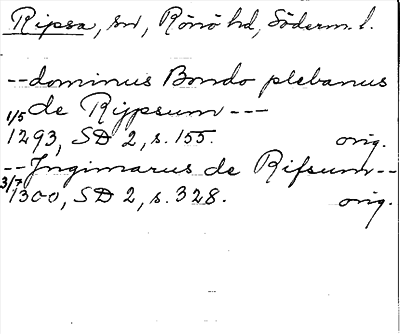 Ripsa, sn, Rönö hd, Söderm. l.
--dominus Bondo plebanus
de Rijpsum---
1/5 1293, SD 2, s. 155. orig.
--Jngimarus de Rifsum--
3/7 1300, SD 2, s. 328. orig.